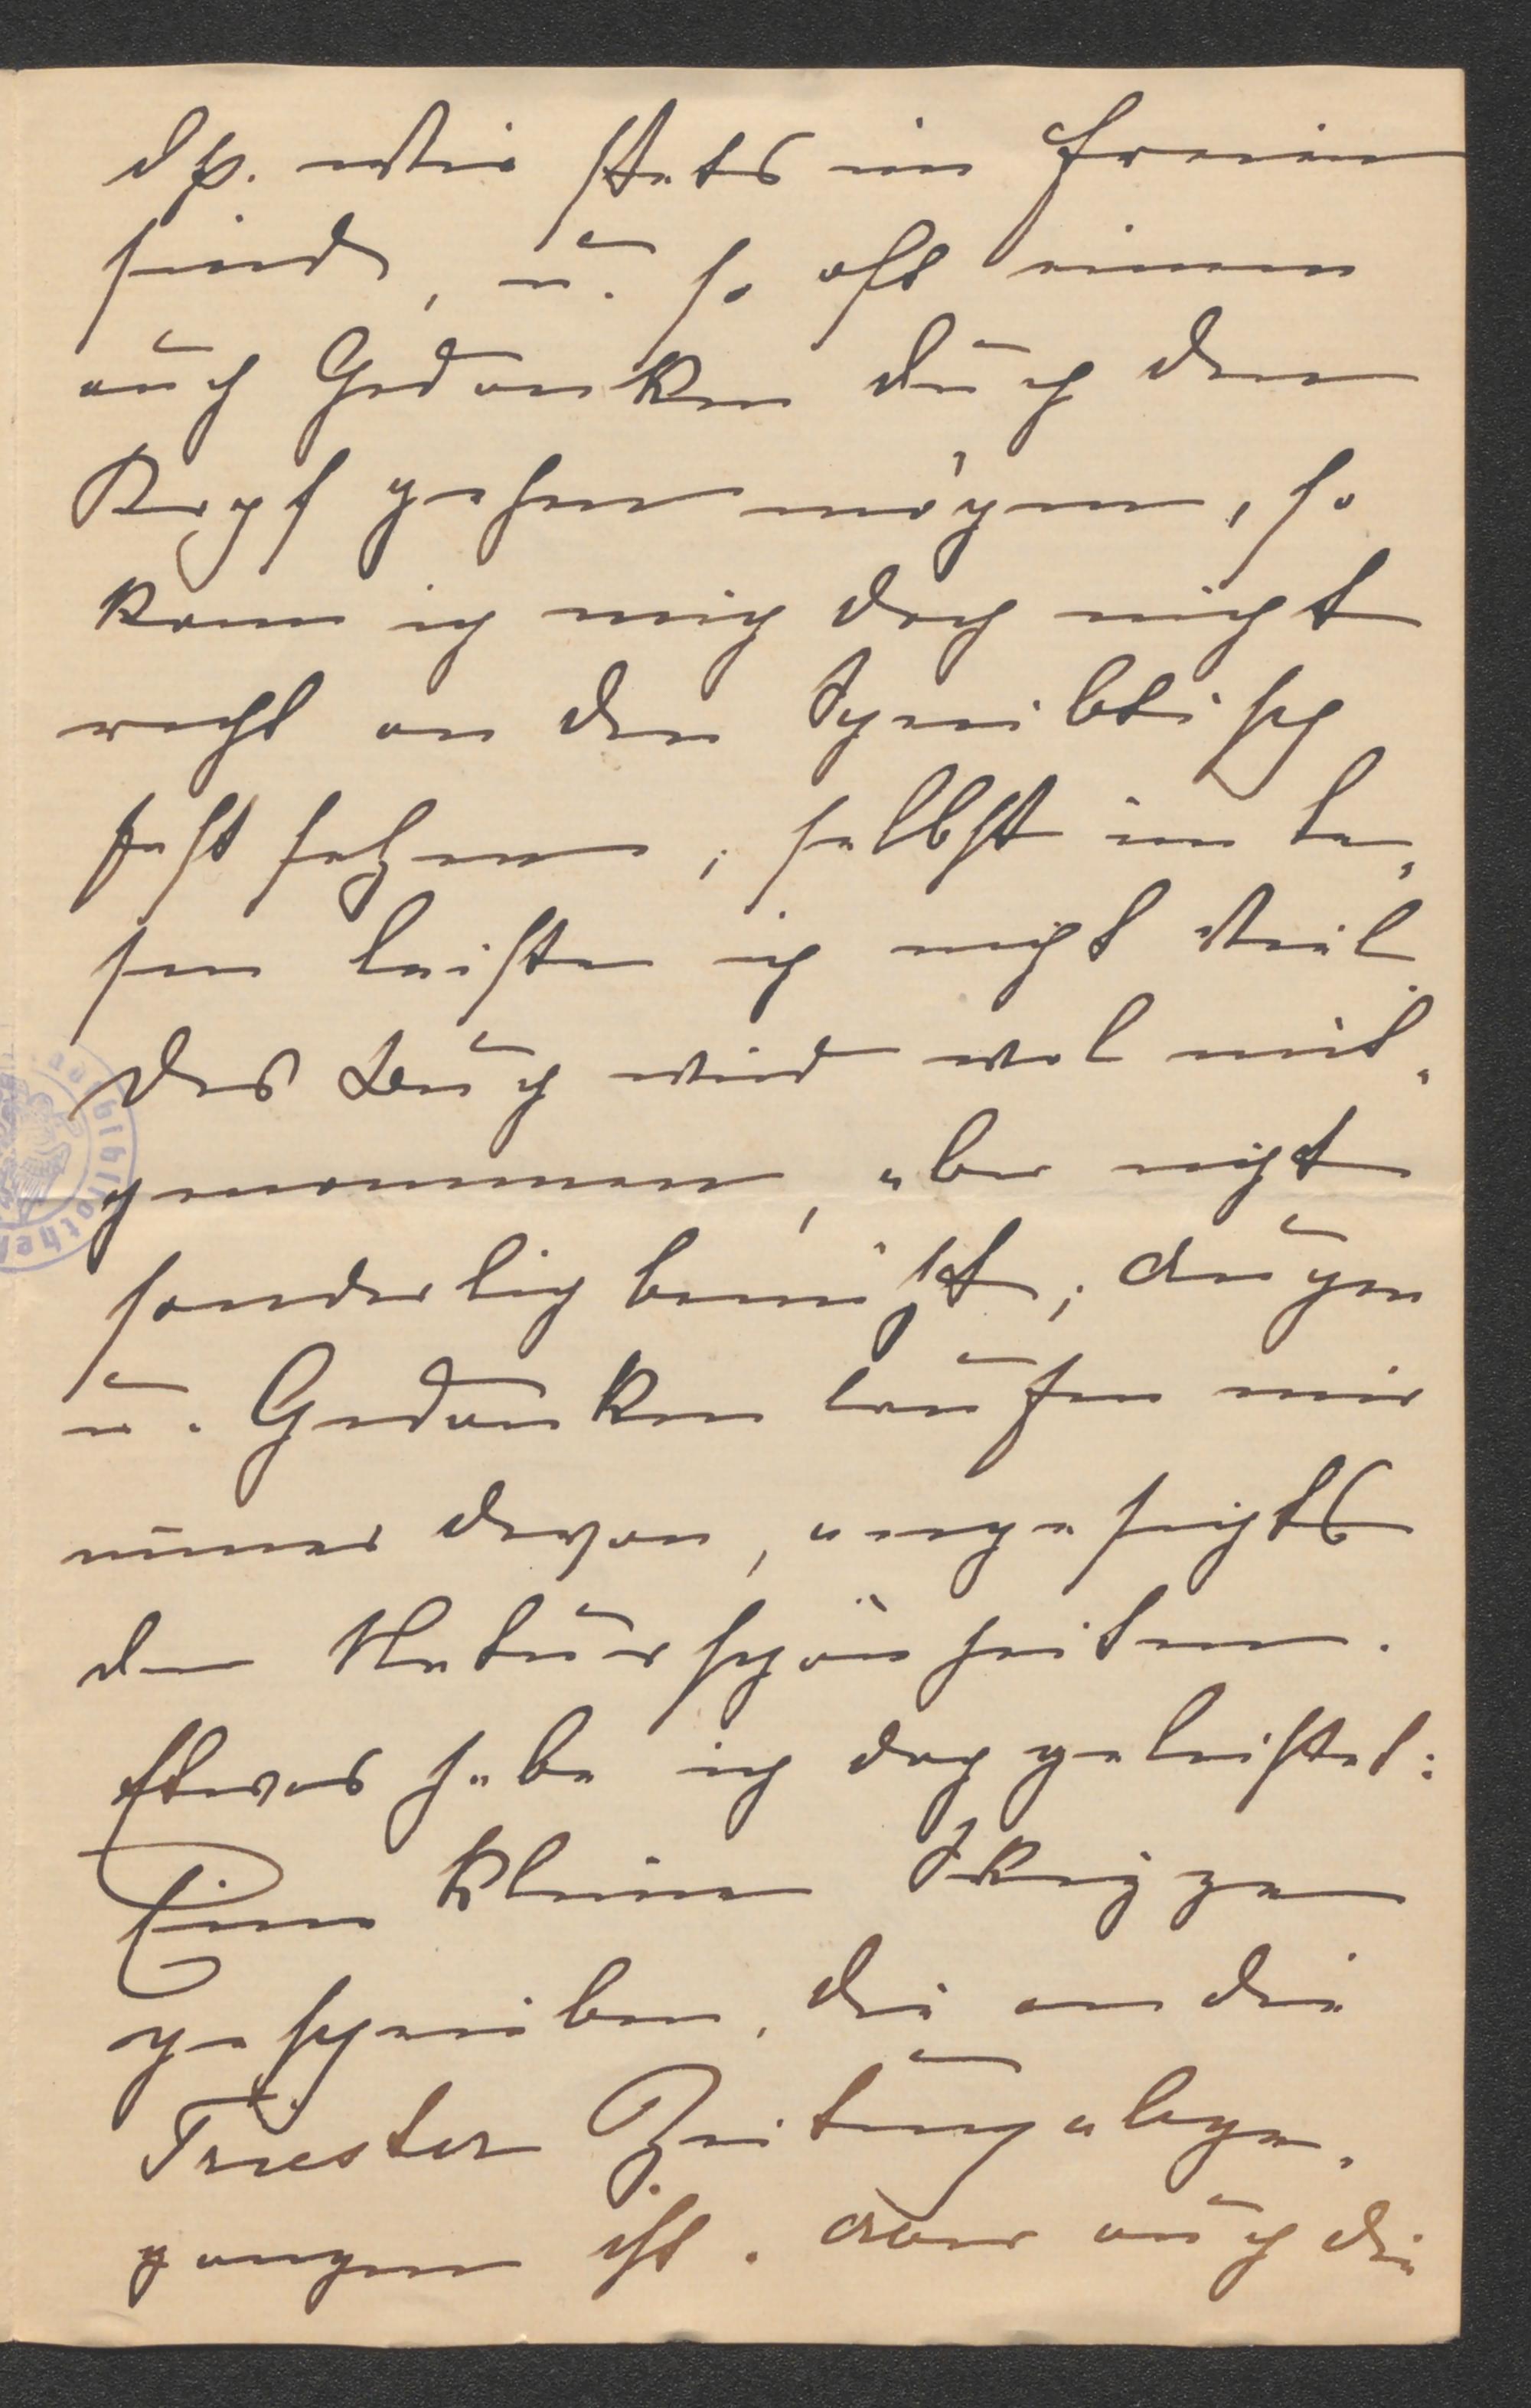 dß. wir stets im Freien
sind, u. so oft einem
auch Gedanken durch den
Kopf gehen mögen, so
kann ich mich doch nicht
recht an den Schreibtisch
fest setzen; selbst im Le„
sen leiste ich nicht viel.
Das Buch wird wol mit„
genommen, aber nicht
sonderlich benützt; Augen
u. Gedanken laufen mir
immer davon, angesichts
der Naturschönheiten.
Etwas habe ich doch geleistet:
Eine kleine Skizze
geschrieben, die an die
Triester Zeitung abge„
gangen ist. Aber auch die